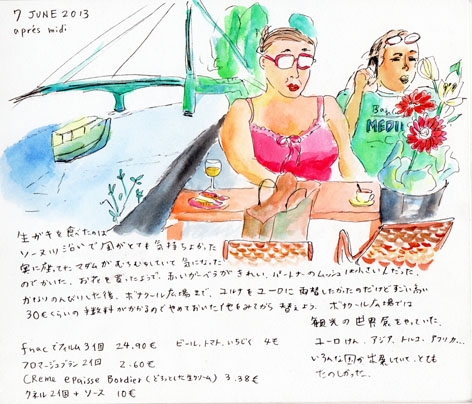 7 JUNE 2013
après midi
Ban
MEDI
生がきを食べたのは
ソーヌ川沿いで風がとても気持ちよかった
実に座ってたマダムがむちむちしていて気になった
のでかいた。お花を買ったようで、赤いガーベラがきれい。パートナーのムッシュは小さい人だった。
かなりのんびりした後、ボザール広場まで。ユルサをユーロに両替したかったのだけどすごい高い
30€くらいの手数料がかかるのでやめておいた 他をみてから替えよう。ボザール広場では
観光の世界展をやっていた。
ユーロけん、アジア、トルコ、アフリカ…
いろんな国が出展していて、とても
たのしかった。
fnacでフィルム3個 24.90€ ビール、トマト、いちじく 4€
フロマージュブラン2個 2.60€
Crème epaisse Bordier (どろっとした生クリーム) 3.38€
クネル2個 + ソース 10€